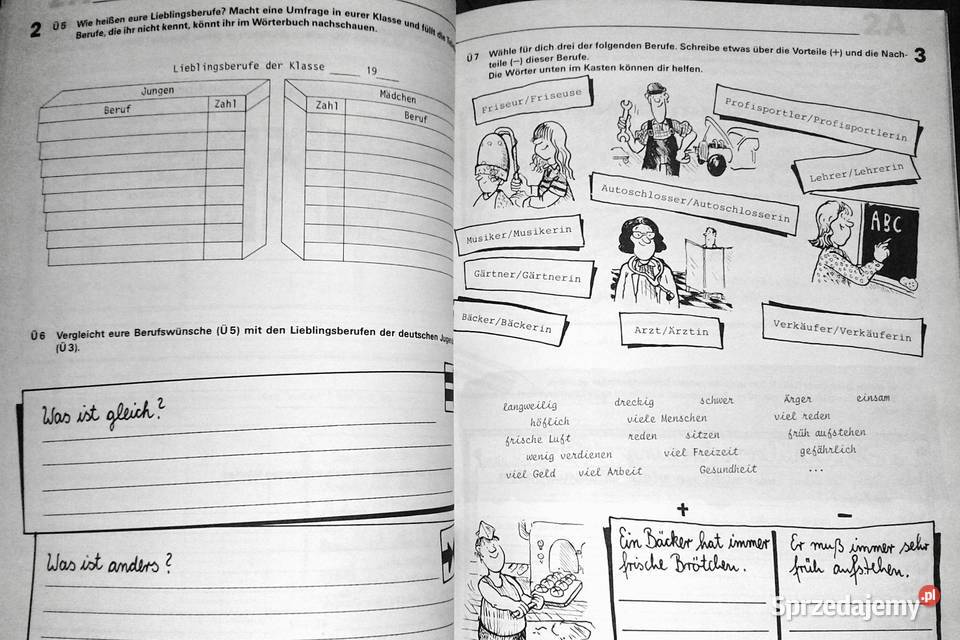 2 Ü5 Wie heißen eure Lieblingsberufe? Macht eine Umfrage in eurer Klasse und füllt die
Berufe, die ihr nicht kennt, könnt ihr im Wörterbuch nachschauen.
Lieblingsberufe der Klasse _____ 19___
Jungen
Beruf Zahl
Mädchen
Zahl Beruf
Ü6 Vergleicht eure Berufswünsche (Ü5) mit den Lieblingsberufen der deutschen
(Ü3).
Was ist gleich?
Was ist anders?
2A
Ü7 Wähle für dich drei der folgenden Berufe. Schreibe etwas über die Vorteile (+) und die Nach- 3
teile (−) dieser Berufe.
Die Wörter unten im Kasten können dir helfen.
Friseur/Friseuse
Profisportler/Profisportlerin
Lehrer/Lehrerin
Autoschlosser/Autoschlosserin
ABC
Musiker/Musikerin
Gärtner/Gärtnerin
Bäcker/Bäckerin
Arzt/Ärztin
Verkäufer/Verkäuferin
langweilig dreckig schwer Ärger einsam
höflich viele Menschen viel reden
frische Luft reden sitzen früh aufstehen
wenig verdienen viel Freizeit gefährlich
viel Geld viel Arbeit Gesundheit ...
+ −
Ein Bäcker hat immer
frische Brötchen.
Er muß immer sehr
früh aufstehen.
Sprzedajemy.pl